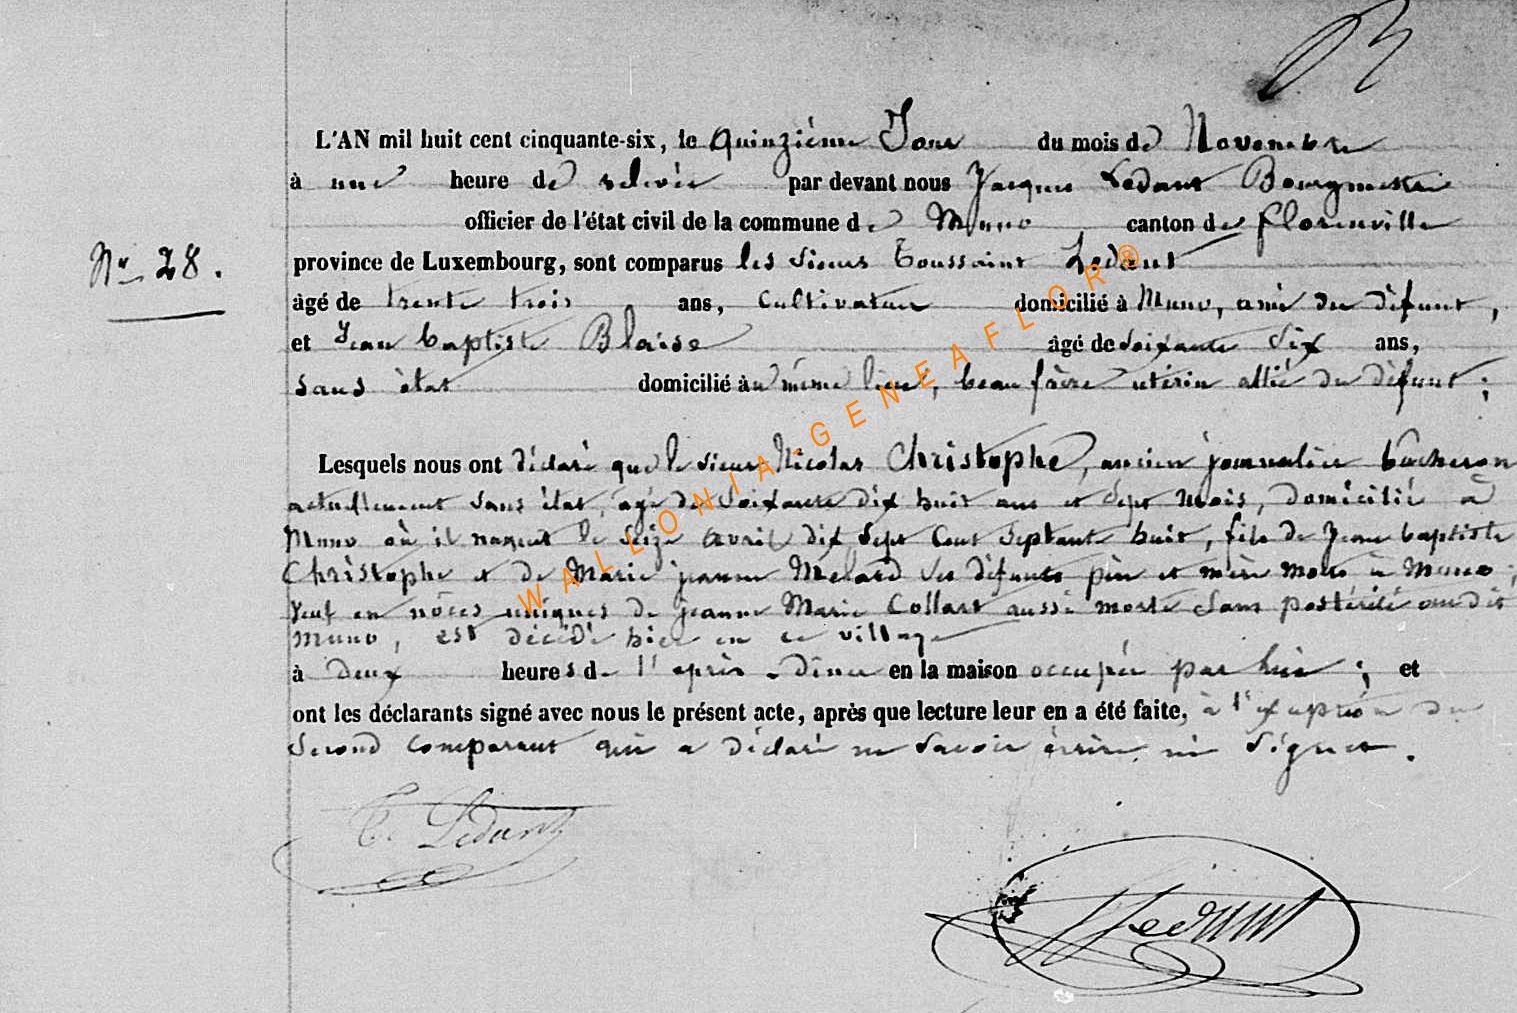 L'AN mil huit cent cinquante-six, le quinzième Jour du mois de Novembre
à une heure de relevée par devant nous Jacques Ledant Bourgmestre
officier de l'état civil de la commune de Muno canton de Florenville
Nº 28.
province de Luxembourg, sont comparus les sieurs Toussaint Ledant
âgé de trente trois ans, Cultivateur domicilié à Muno, ami du défunt,
et Jean baptiste Blaise âgé de soixante six ans,
sans état domicilié au même lieu, beau frère utérin allié du défunt;
Lesquels nous ont déclaré que le sieur Nicolas Christophe, ancien journalier bucheron
actuellement sans état, âgé de soixante dix huit ans et sept mois, domicilié à
Muno où il naquit le seize avril dix sept cent septante huit, fils de Jean baptiste
Christophe et de Marie jeanne Melard ses défunts père et mère morts à Muno;
veuf en nôces uniques de jeanne Marie Collart aussi morte sans postérité au dit
Muno, est décédé hier en ce village
à deux heures de l'après-diner en la maison occupée par lui; et
ont les déclarants signé avec nous le présent acte, après que lecture leur en a été faite, à l'exception du
second comparant qui a déclaré ne savoir écrire ni signer.
T. Ledant
Ledant
WALLONIA-GENEAFLOR®